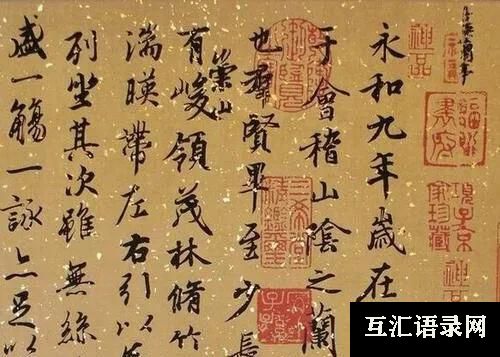 神品
項子京
家珍藏
永和九年歲在
于會稽山陰之蘭
也羣賢畢至少長
有崇山峻領茂林脩竹
湍暎帶左右引以
列坐其次雖無絲
盛一觴一詠亦足以
互汇语录网